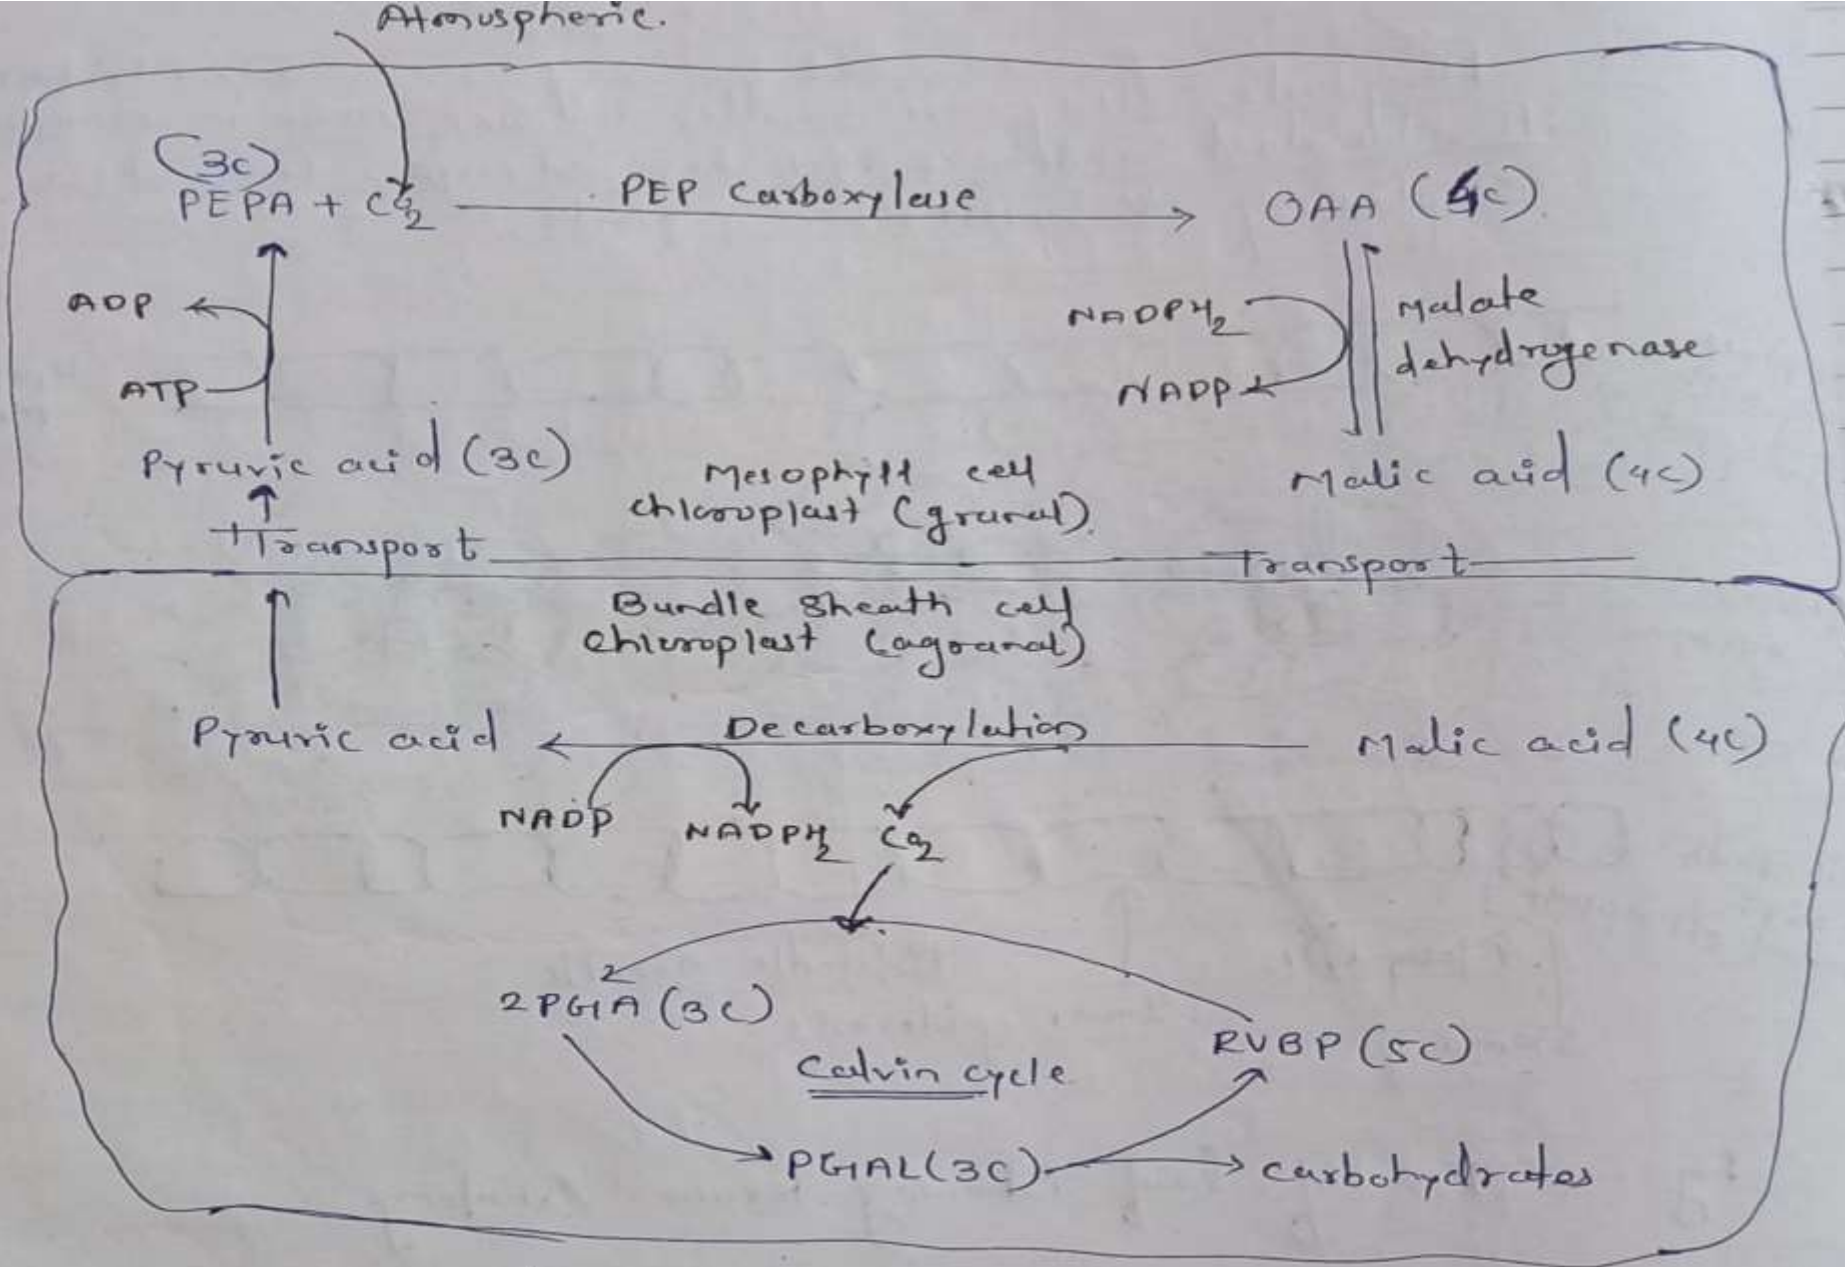 Atmospheric.
(3C)
PEPA + CO2
PEP Carboxylase
OAA (4C).
ADP
ATP
NADPH2
NADP
Malate
dehydrogenase
Pyruvic acid (3C)
Mesophyll cell
chloroplast (granal).
Malic acid (4C)
Transport
Transport
Bundle sheath cell
chloroplast (agranal)
Pyruvic acid
Decarboxylation
Malic acid (4C)
NADP
NADPH2
CO2
2PGA (3C)
RUBP (5C)
Calvin cycle
PGAL (3C)
carbohydrates